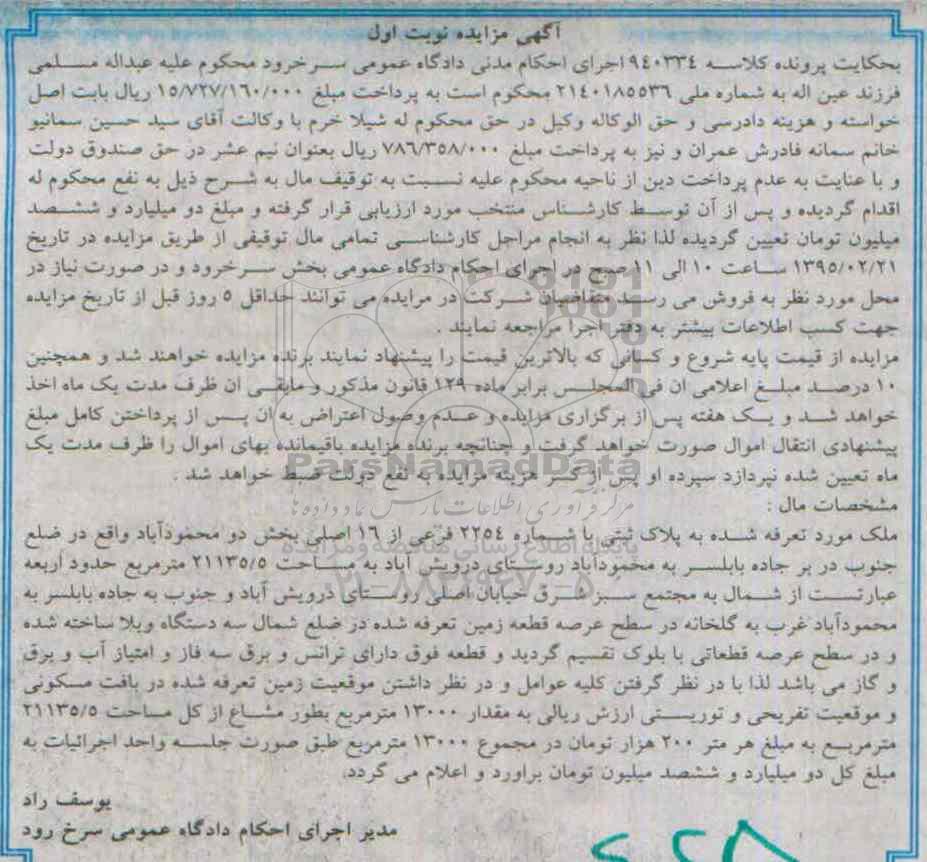 آگهی مزایده نوبت اول
بحکایت پرونده کلاسه ۹۴۰۳۳۴ اجرای احکام مدنی دادگاه عمومی سرخرود محکوم علیه عبداله مسلمی
فرزند عین اله به شماره ملی ۲۱۴۰۱۸۵۵۳۶ محکوم است به پرداخت مبلغ ۱۵/۷۲۷/۱۶۰/۰۰۰ ریال بابت اصل
خواسته و هزینه دادرسی و حق الوکاله وکیل در حق محکوم له شیلا خرم با وکالت آقای سید حسین سمانیو
خانم سمانه فادرش عمران و نیز به پرداخت مبلغ ۷۸۶/۳۵۸/۰۰۰ ریال بعنوان نیم عشر در حق صندوق دولت
و با عنایت به عدم پرداخت دین از ناحیه محکوم علیه نسبت به توقیف مال به شرح ذیل به نفع محکوم له
اقدام گردیده و پس از آن توسط کارشناس منتخب مورد ارزیابی قرار گرفته و مبلغ دو میلیارد و ششصد
میلیون تومان تعیین گردیده لذا نظر به انجام مراحل کارشناسی تمامی مال توقیفی از طریق مزایده در تاریخ
۱۳۹۵/۰۲/۲۱ ساعت ۱۰ الی ۱۱ صبح در اجرای احکام دادگاه عمومی بخش سرخرود و در صورت نیاز در
محل مورد نظر به فروش می رسد متقاضیان شرکت در مزایده می توانند حداقل ۵ روز قبل از تاریخ مزایده
جهت کسب اطلاعات بیشتر به دفتر اجرا مراجعه نمایند .
مزایده از قیمت پایه شروع و کسانی که بالاترین قیمت را پیشنهاد نمایند برنده مزایده خواهند شد و همچنین
۱۰ درصد مبلغ اعلامی ان فی المجلس برابر ماده ۱۲۹ قانون مذکور و مابقی ان ظرف مدت یک ماه اخذ
خواهد شد و یک هفته پس از برگزاری مزایده و عدم وصول اعتراض به ان پس از پرداختن کامل مبلغ
پیشنهادی انتقال اموال صورت خواهد گرفت و چنانچه برنده مزایده باقیمانده بهای اموال را ظرف مدت یک
ParsNamadData
ماه تعیین شده نپردازد سپرده او پس از کسر هزینه مزایده به نفع دولت ضبط خواهد شد .
مرکز فرآوری اطلاعات پارس نماد داده ها
مشخصات مال :
ملک مورد تعرفه شده به پلاک ثبتی با شماره ۲۲۵۴ فرعی از ۱۶ اصلی بخش دو محمودآباد واقع در ضلع
پایگاه اطلاع رسانی مناقصه و مزایده
جنوب در بر جاده بابلسر به محمودآباد روستای درویش آباد به مساحت ۲۱۱۳۵/۵ مترمربع حدود اربعه
۰۲۱-۸۸۳۴۹۶۷۰-۵
عبارتست از شمال به مجتمع سبز شرق خیابان اصلی روستای درویش آباد و جنوب به جاده بابلسر به
محمودآباد غرب به گلخانه در سطح عرصه قطعه زمین تعرفه شده در ضلع شمال سه دستگاه ویلا ساخته شده
و در سطح عرصه قطعاتی با بلوک تقسیم گردید و قطعه فوق دارای ترانس و برق سه فاز و امتیاز آب و برق
و گاز می باشد لذا با در نظر گرفتن کلیه عوامل و در نظر داشتن موقعیت زمین تعرفه شده در بافت مسکونی
و موقعیت تفریحی و توریستی ارزش ریالی به مقدار ۱۳۰۰۰ مترمربع بطور مشاع از کل مساحت ۲۱۱۳۵/۵
مترمربع به مبلغ هر متر ۲۰۰ هزار تومان در مجموع ۱۳۰۰۰ مترمربع طبق صورت جلسه واحد اجرائیات به
مبلغ کل دو میلیارد و ششصد میلیون تومان براورد و اعلام می گردد.
یوسف راد
مدیر اجرای احکام دادگاه عمومی سرخ رود